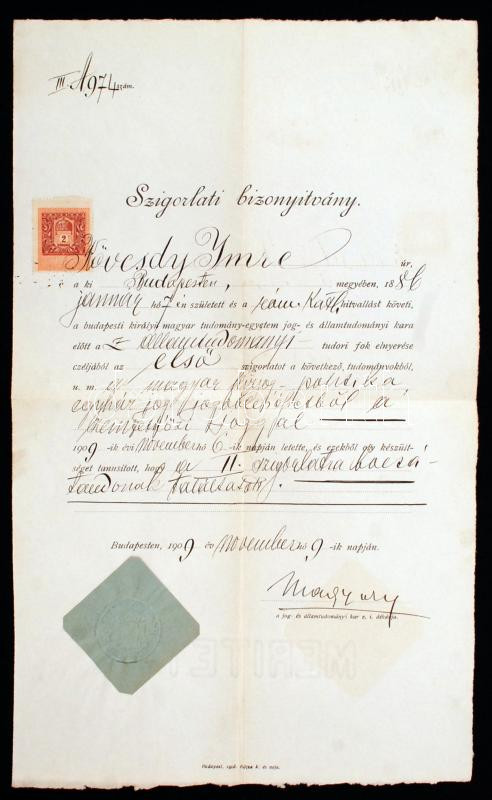 III. A 974 szám.
Szigorlati bizonyitvány.
2
Kövesdy Ymre úr,
a ki Budapesten, megyében, 1886
január hó 7 én született és a róm. Kath. hitvallást követi,
a budapesti királyi magyar tudomány-egyetem jog- és államtudományi kara
előtt a államtudományi tudori fok elnyerése
czéljából az első szigorlatot a következő, tudományokból,
u. m. a magyar közjog- politika
egyház jog, jogbölcsészetből a
nemzetközi joggal
1909 -ik évi November hó 6 -ik napján letette, és ezekből oly készült-
séget tanusitott, hogy a II. szigorlatra bocsá-
tandónak találtatott.
Budapesten, 1909 évi November hó 9 -ik napján.
Magyary
a jog- és államtudományi kar e. i. dékánja.
MERITET
Budapest, 1908.